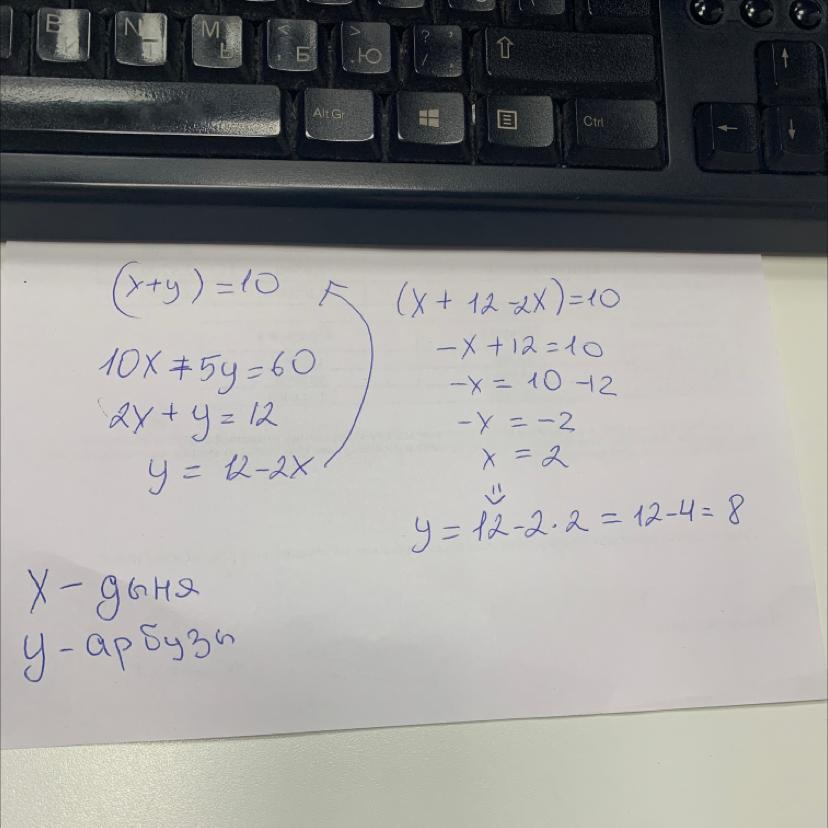 B И
N Т
M Ь
< , Б
> . Ю
? , / .
Alt Gr
Ctrl
(x+y)=10
10x+5y=60
2x+y=12
y=12-2x
(x+12-2x)=10
-x+12=10
-x=10-12
-x=-2
x=2
y=12-2·2=12-4=8
x-дыня
y-арбузы